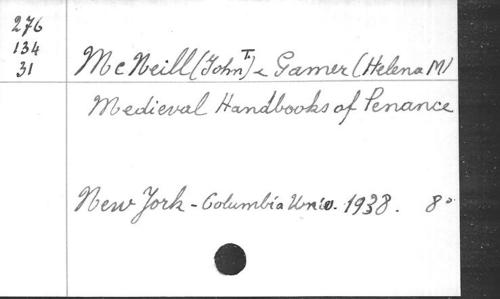 276
134
31
McNeill (John T) & Gamer (Helena M)
Medieval Handbooks of Penance
New York - Columbia Univ. 1938. 8°